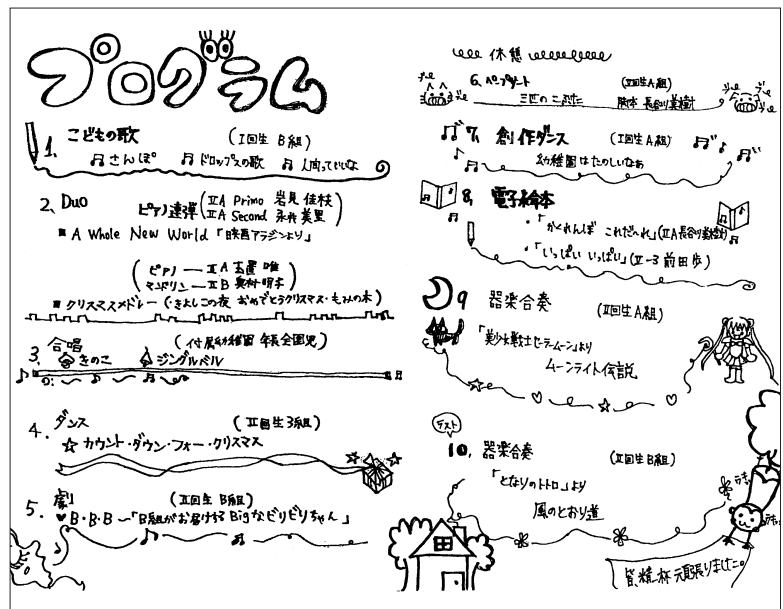 プログラム
1. こどもの歌 (I回生 B組)
♫さんぽ ♫ドロップスの歌 ♫人間っていいな
2. Duo
ピアノ連弾 (ⅡA Primo 岩見佳枝
ⅡA Second 永井美里)
■ A Whole New World 「映画アラジンより」
(ピアノ ― ⅡA 古置 唯
マンドリン ― ⅡB 奥村明木)
■ クリスマスメドレー (・きよしこの夜 おめでとうクリスマス・もみの木)
3. 合唱 (付属幼稚園 年長全園児)
きのこ ジングルベル
4. ダンス (Ⅱ回生3組)
☆ カウント・ダウン・フォー・クリスマス
5. 劇 (Ⅱ回生 B組)
♥ B・B・B ~「B組がお届けする Bigなビリビリちゃん」
休憩
6. ペープサート (Ⅱ回生A組)
三匹のこぶた 脚本 長谷川美樹
7. 創作ダンス (I回生A組)
幼稚園はたのしいなぁ
8. 電子絵本
・「かくれんぼ これだ〜れ」(ⅡA長谷川美樹)
・「いっぱい いっぱい」(Ⅱ-3 前田歩)
9 器楽合奏 (Ⅱ回生A組)
「美少女戦士セーラームーン」より
ムーンライト伝説
ラスト
10. 器楽合奏 (Ⅱ回生B組)
「となりのトトロ」より
風のとおり道
うきっ
皆、精一杯頑張りました。